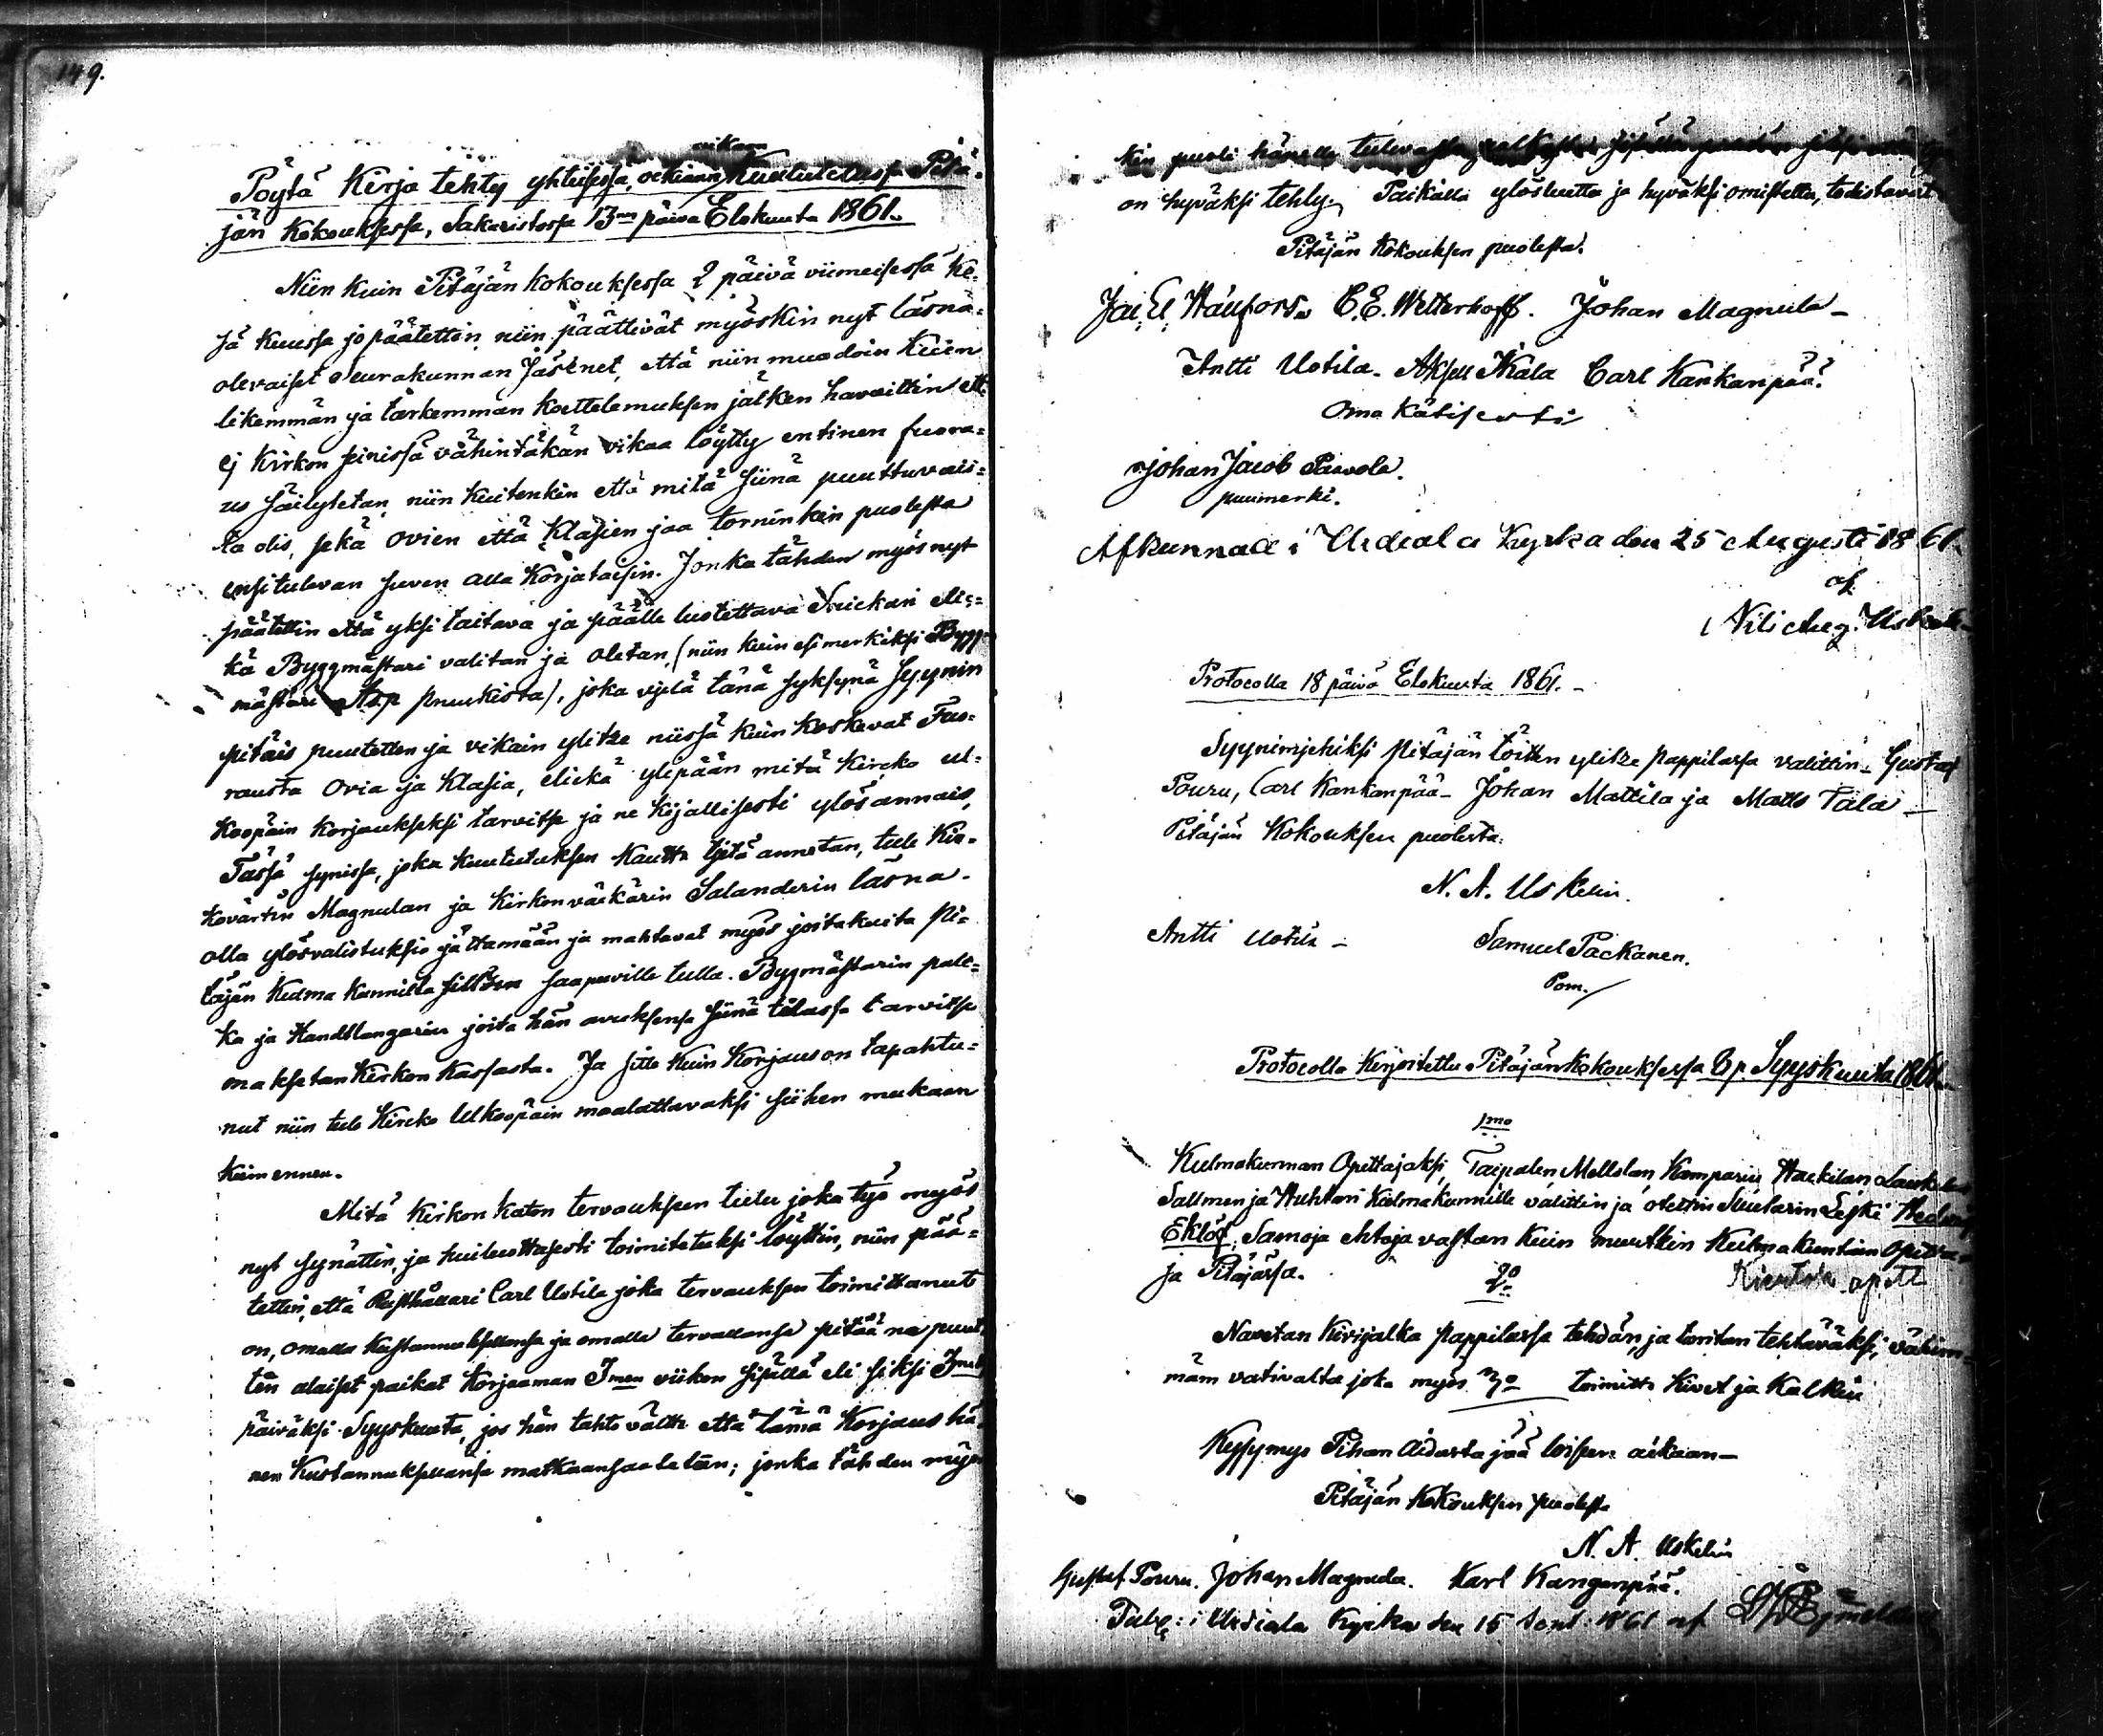 149.
aikaan
Pöytä Kirja tehty yhteisessä, oekiann Kuulutetussa Pitä-
jän Kokouksessa, Sakaristossa 13na päivä Elokuuta 1861.
Niin kuin Pitäjän kokouksessa 2 päivä viimeisessä Ke-
sä kuussa jo päätettin, niin päättivät myöskin nyt läsnä-
olevaiset Seurakunnan Jäsenet, että niin muodoin kuin
likemmän ja tarkemman koettelemuksen jälken havaittin ett
ej Kirkon seinissä vähintäkän vikaa löytty entinen fuora-
us säilytetan, niin kuitenkin että mitä siinä puuttuvais-
ta olis, sekä ovien että Klasien jaa torninkin puolesta
ensitulevan suven alla Korjataisin. Jonka tähden myös nyt
päätettin että yksi taitava ja päälle luotettava Snickari elic-
kä Byggmästari valitan ja oletan, (niin kuin esimerkiksi Bygg-
mästäri Asp Pruukista), joka vielä tänä syksynä Syynin
pitäis puutetten ja vikain ylitze niissä kuin koskevat Fuo-
rausta Ovia ja Klasia, elickä ylipään mitä Kircko ul-
koopäin korjaukseksi tarvitse ja ne Kijallisesti ylösannais,
Tässä synissa, joka kuulutuksen kautta tietä annetan, tule Kir-
kovärtin Magnulan ja Kirkonväkärin Salanderin läsnä-
olla ylösvalistuksia jättamään ja mahtavat myös joitakuita Pi-
täjän Kulma Kunnilta sillon saapuville tulla. Bygmästarin palk-
ka ja Handtlangarien joita hän avuksensa siinä tilassa tarvitse
maksetan Kirkon Kassasta. Ja sitte kuin Korjaus on tapahtu-
nut niin tule Kircko Ulkoopäin maalattavaksi siihen mukaan
kuin ennen.
Mitä Kirkon katon tervauksen tulee joka työ myös
nyt synättin, ja huiluottasesti toimitetuksi löyttin, niin pää-
tettin, että Rusthållari Carl Uotila joka tervauksen toimittanut
on, omalla kustannuksellansa ja omalla tervallansa pitää na puut-
ten alaiset paikat korjaaman 3men viikon sisällä eli siksi 3mek
päiväksi Syyskuuta, jos hän tahto välttä että tämä Korjaus hä-
nen Kustannuksellansa matkaansaatetan; jonka tähden myös
kin puoli hänelle tulevasta palkasta sisällä
on hyväksi tehty. Paikalla ylösluettu ja hyväksi omistettu, todistavat
Pitäjän Kokouksen puolesta.
C. E. Wetterhoff. Johan Magnula
Antti Uotila. Aksell Kala Carl Kankanpää.
Oma kätisesti
Johan Jacob Paavola.
puumerki.
Afkunnad i Urdiala Kyrka den 25 Augusti 1861.
af
Nils Aug. Uskelin
Protocolla 18 päivä Elokuuta 1861.
Syynimiehiksi Pitäjän töitten ylitze Pappilassa valittin Gustaf
Pouru, Carl Kankanpää Johan Mattila ja Matts Tala
Pitäjän Kokouksen puolesta.
N. A. Uskelin.
Antti Uotila
Samuel Packanen.
Pom.
Protocolla Kirjoitettu Pitäjänkokouksessa 8 p. Syyskuuta 1861.
1mo
Kulmakunnan Opettajaksi, Taipalen Mellolan Kamparin Haekilan Laukelan
Sallmen ja Huhtan Kulmakunnille valittin ja otettin Suutarin Leski Hedvig
Eklöf, Samoja ehtoja vastan kuin muutkin Kulmakuntain opetta-
ja Pitäjässä.
Kiertokoulu opett
2o
Navetan Kivijalka Pappilassa tehdän ja taritan tehtäväksi, vähim-
män vativalta joka myös 3o toimitta kivet ja kalkin
Kysymys Pihan Aidasta jää toisen aikaan
Pitäjän Kokouksen puolesta
N. A. Uskelin
Gustaf Pouru. Johan Magnula. Karl Kanganpää.
Publ: i Urdiala Kyrka den 15 Sept 1861 af